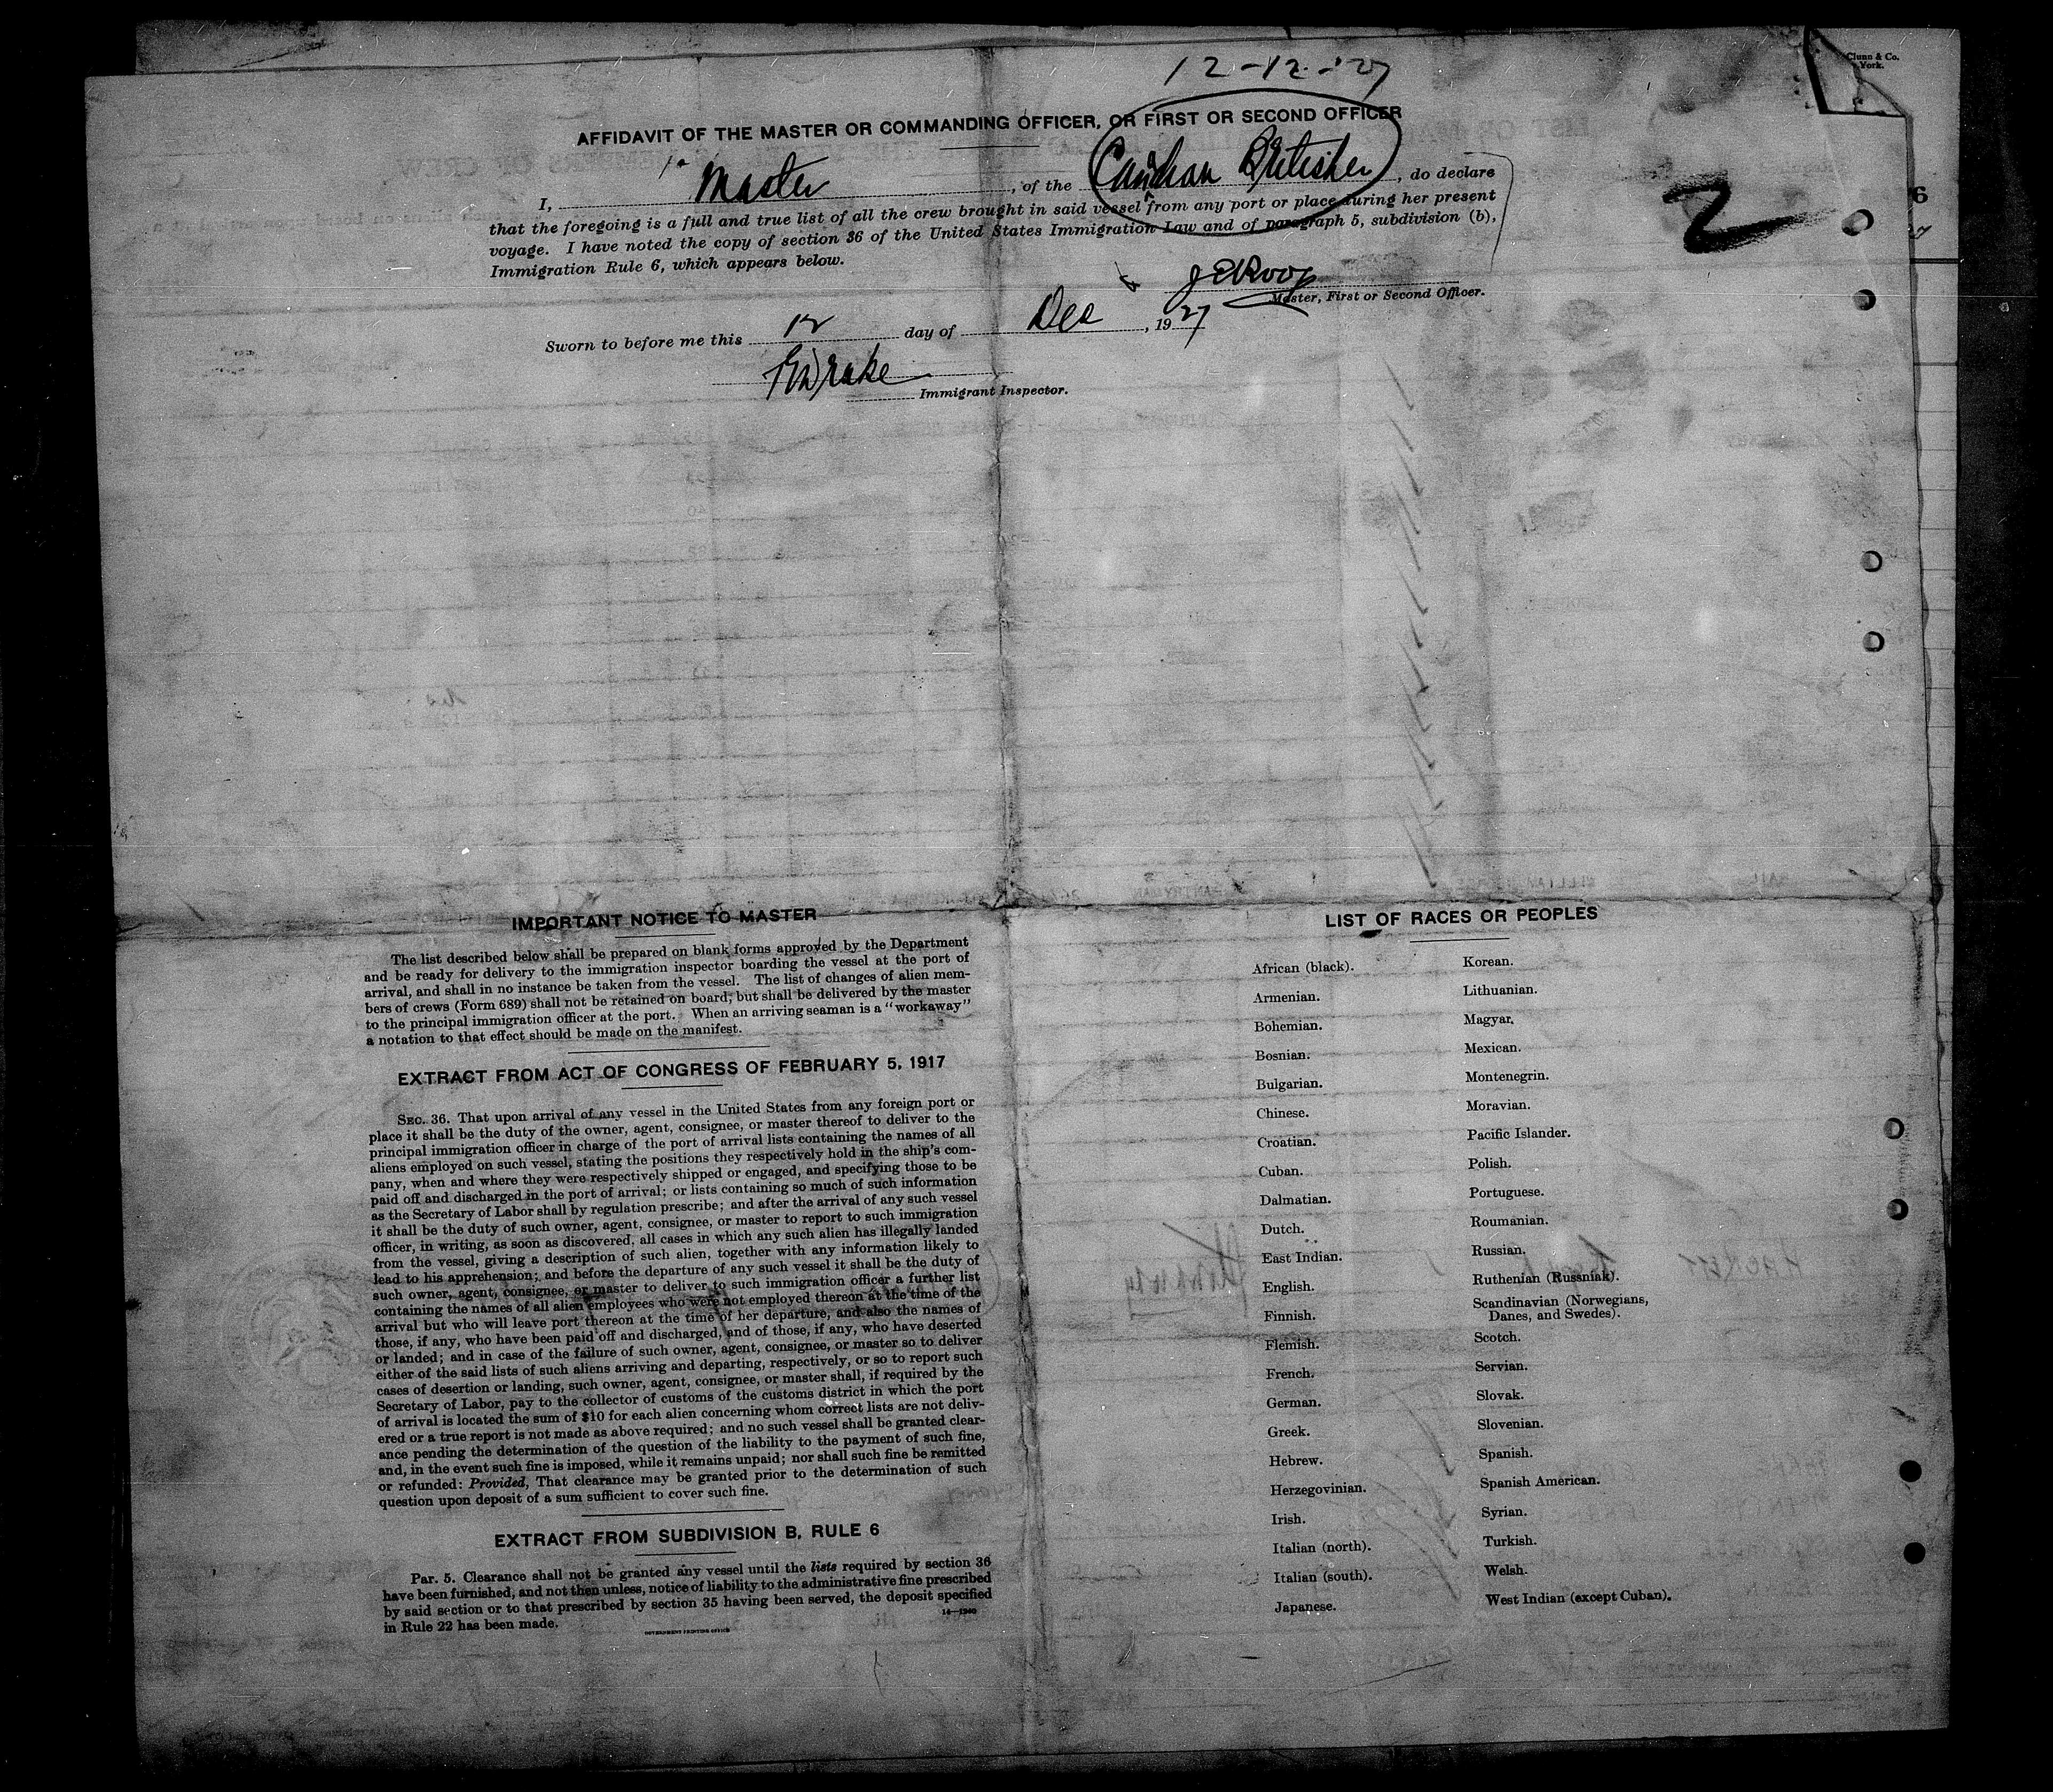 12-12-'27
Clunn & Co.
York.
AFFIDAVIT OF THE MASTER OR COMMANDING OFFICER, OR FIRST OR SECOND OFFICER
I, Master, of the Canadian Britisher, do declare
that the foregoing is a full and true list of all the crew brought in said vessel from any port or place during her present
voyage. I have noted the copy of section 36 of the United States Immigration Law and of paragraph 5, subdivision (b),
Immigration Rule 6, which appears below.
2
6
Master, First or Second Officer.
Sworn to before me this 12 day of Dec, 1927
Immigrant Inspector.
IMPORTANT NOTICE TO MASTER
The list described below shall be prepared on blank forms approved by the Department
and be ready for delivery to the immigration inspector boarding the vessel at the port of
arrival, and shall in no instance be taken from the vessel. The list of changes of alien mem-
bers of crews (Form 689) shall not be retained on board, but shall be delivered by the master
to the principal immigration officer at the port. When an arriving seaman is a "workaway"
a notation to that effect should be made on the manifest.
EXTRACT FROM ACT OF CONGRESS OF FEBRUARY 5, 1917
SEC. 36. That upon arrival of any vessel in the United States from any foreign port or
place it shall be the duty of the owner, agent, consignee, or master thereof to deliver to the
principal immigration officer in charge of the port of arrival lists containing the names of all
aliens employed on such vessel, stating the positions they respectively hold in the ship's com-
pany, when and where they were respectively shipped or engaged, and specifying those to be
paid off and discharged in the port of arrival; or lists containing so much of such information
as the Secretary of Labor shall by regulation prescribe; and after the arrival of any such vessel
it shall be the duty of such owner, agent, consignee, or master to report to such immigration
officer, in writing, as soon as discovered, all cases in which any such alien has illegally landed
from the vessel, giving a description of such alien, together with any information likely to
lead to his apprehension; and before the departure of any such vessel it shall be the duty of
such owner, agent, consignee, or master to deliver to such immigration officer a further list
containing the names of all alien employees who were not employed thereon at the time of the
arrival but who will leave port thereon at the time of her departure, and also the names of
those, if any, who have been paid off and discharged, and of those, if any, who have deserted
or landed; and in case of the failure of such owner, agent, consignee, or master so to deliver
either of the said lists of such aliens arriving and departing, respectively, or so to report such
cases of desertion or landing, such owner, agent, consignee, or master shall, if required by the
Secretary of Labor, pay to the collector of customs of the customs district in which the port
of arrival is located the sum of $10 for each alien concerning whom correct lists are not deliv-
ered or a true report is not made as above required; and no such vessel shall be granted clear-
ance pending the determination of the question of the liability to the payment of such fine,
and, in the event such fine is imposed, while it remains unpaid; nor shall such fine be remitted
or refunded: Provided, That clearance may be granted prior to the determination of such
question upon deposit of a sum sufficient to cover such fine.
EXTRACT FROM SUBDIVISION B, RULE 6
Par. 5. Clearance shall not be granted any vessel until the lists required by section 36
have been furnished, and not then unless, notice of liability to the administrative fine prescribed
by said section or to that prescribed by section 35 having been served, the deposit specified
in Rule 22 has been made.
GOVERNMENT PRINTING OFFICE
LIST OF RACES OR PEOPLES
African (black).
Armenian.
Bohemian.
Bosnian.
Bulgarian.
Chinese.
Croatian.
Cuban.
Dalmatian.
Dutch.
East Indian.
English.
Finnish.
Flemish.
French.
German.
Greek.
Hebrew.
Herzegovinian.
Irish.
Italian (north).
Italian (south).
Japanese.
Korean.
Lithuanian.
Magyar.
Mexican.
Montenegrin.
Moravian.
Pacific Islander.
Polish.
Portuguese.
Roumanian.
Russian.
Ruthenian (Russniak).
Scandinavian (Norwegians,
Danes, and Swedes).
Scotch.
Servian.
Slovak.
Slovenian.
Spanish.
Spanish American.
Syrian.
Turkish.
Welsh.
West Indian (except Cuban).